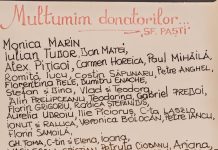 Multumim donatorilor...
"SF. PAȘTI"
Monica MARIN
Iulian TUDOR, Dan Matei,
Alex PIȚIGOI, Carmen HOREICA, Paul MIHĂILĂ,
Romită lucu, Costin SĂPUNARU, Petre ANGHEL,
Florentina BIELE, Dumitru ENACHE,
Stefan și Dina, Vlad și Teodora,
Alin PRELIPCEANU, Teodorina, Gabriel PREDOI,
FLORIN GRIGORIU, Rodica STEFANIDIS,
Aurelia UDROIU, Ilie Piciorus, C-ța LASZLO
IONUȚ și RALUCA, VERONICA BOLOCAN, PETRE IANCU,
Florin SAMOILĂ,
GH. TOMA, C-tin și Elena, Ioana,
Petruța Ciobanu, Ariana,